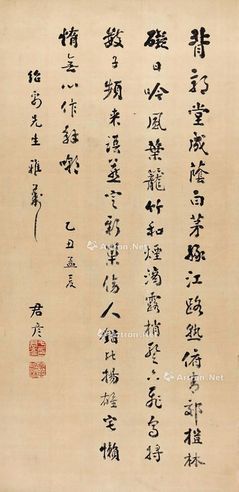 背郭堂成蔭白茅緣江路熟俯青郊榿林
礙日吟風葉籠竹和煙滴露梢暫下飛烏將
數子頻來語燕定新巢傍人錯比揚雄宅懶
惰無心作解嘲
乙丑孟夏
紹前先生雅屬
君彦
Artron.Net
Artron.Net
Artron.Net